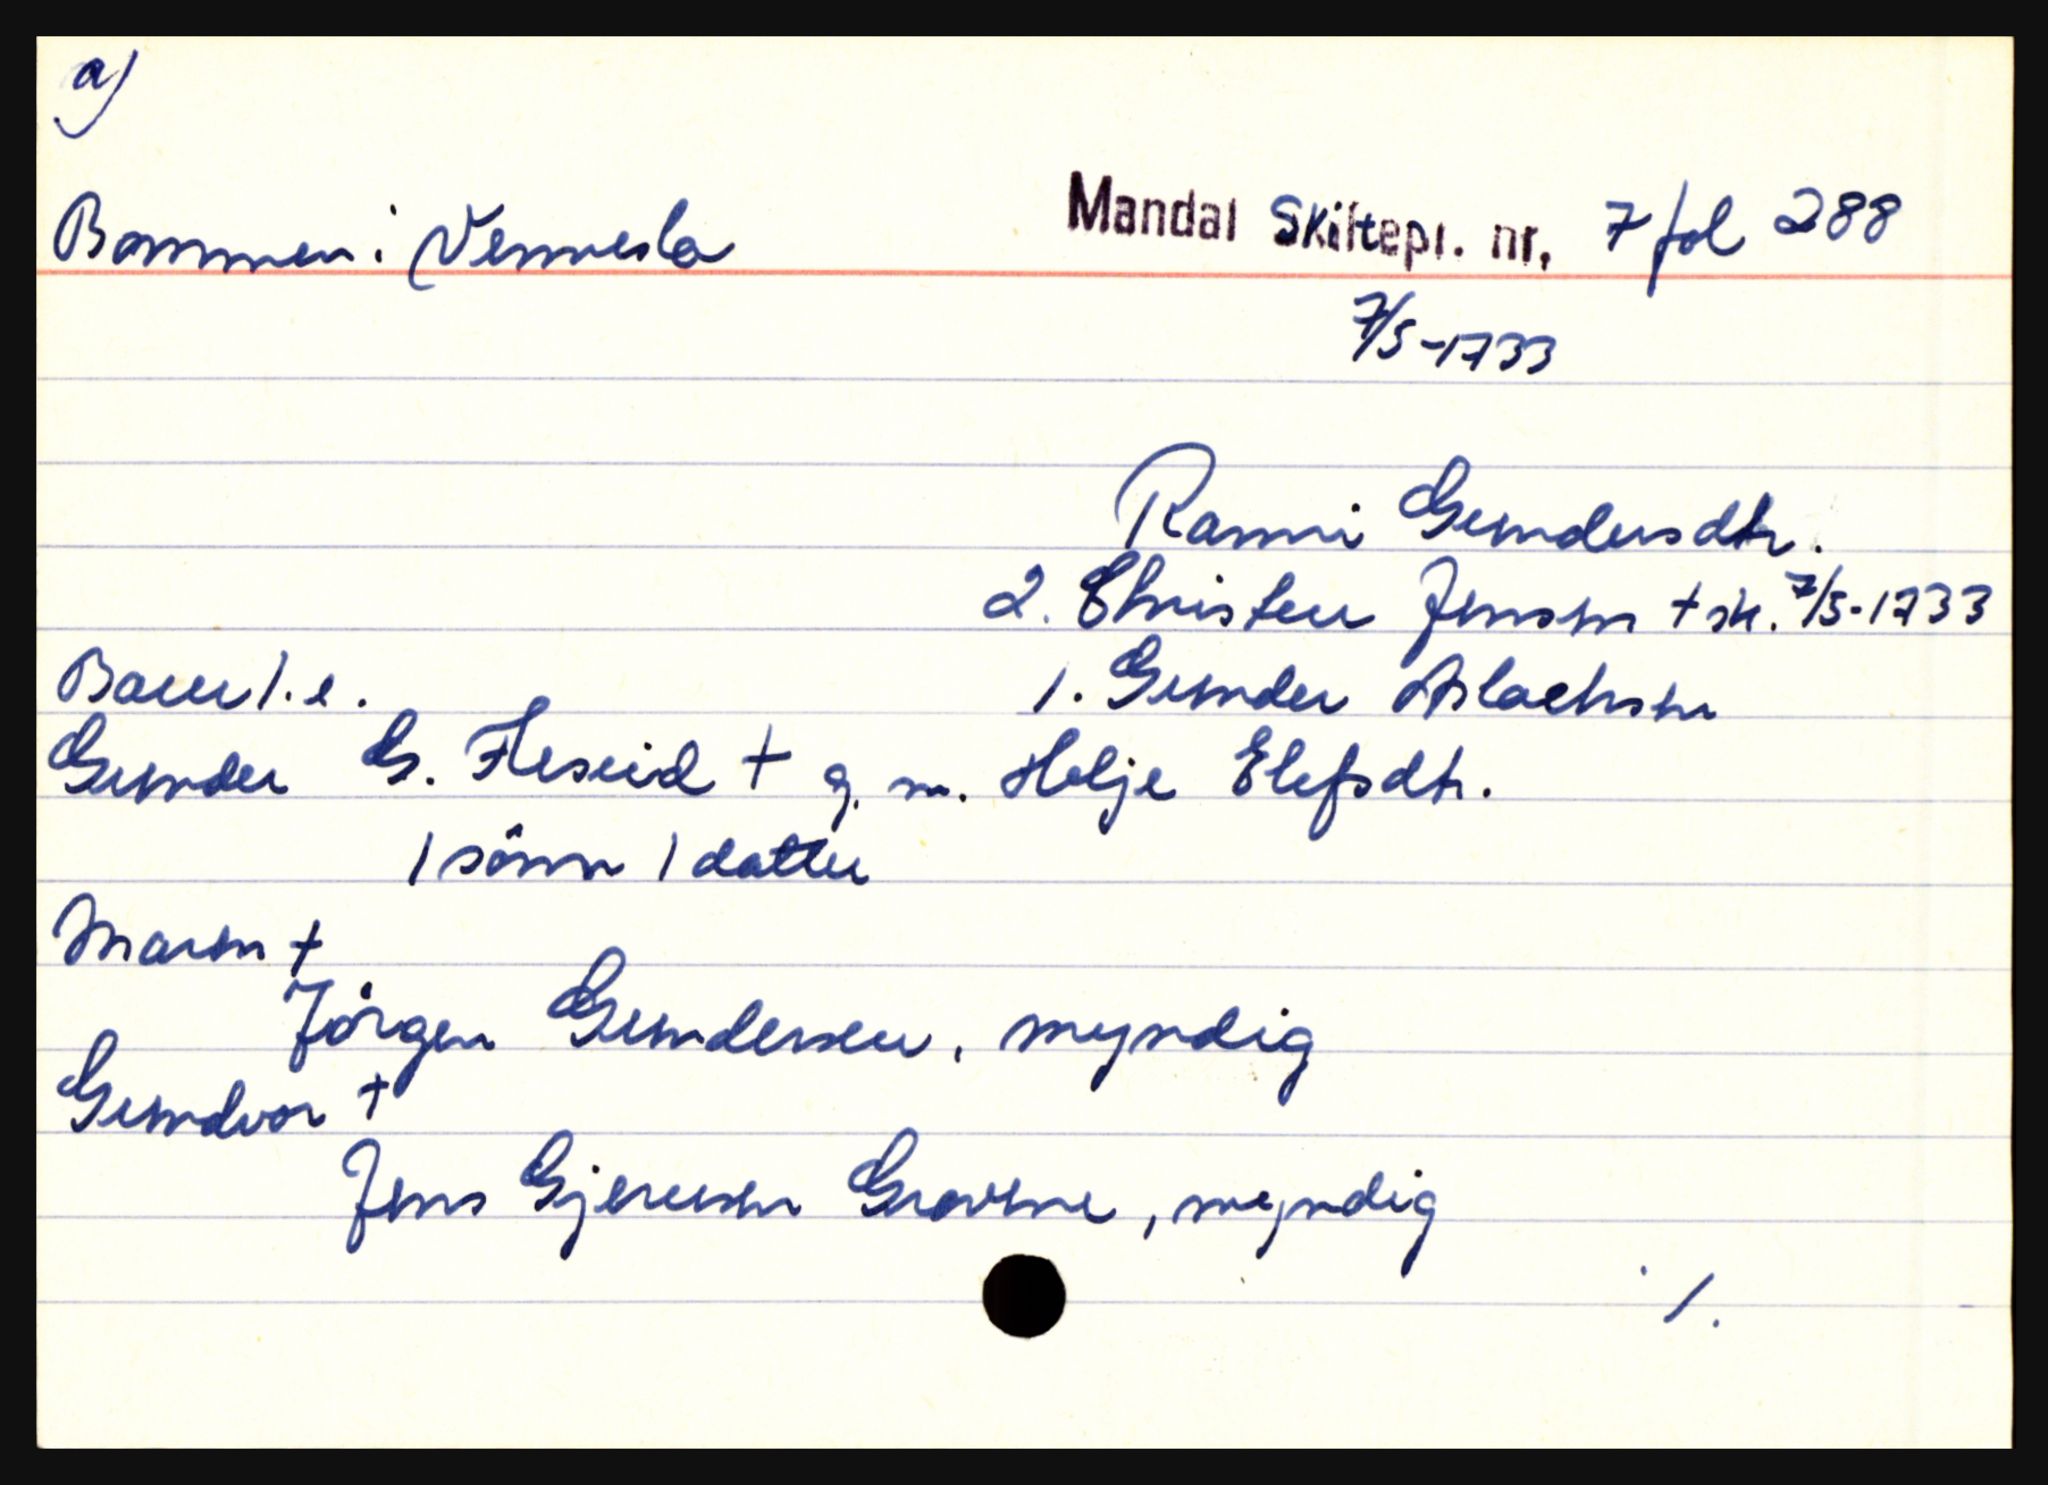 a)
Bommen: Vennesla Mandal Skiftepr. nr. 7 fol 288
7/5-1733
Ranni Gundersdtr.
2. Christen Jensen + sk. 7/5-1733
Barn 1.e. 1. Gunder Aslachsen
Gunder G. Fleseid + g. m. Helje Elefsdtr.
1 sönn 1 datter
Maren +
Jörgen Gundersen, myndig
Gundvor +
Jens Gjerusen Gravene, myndig
1.